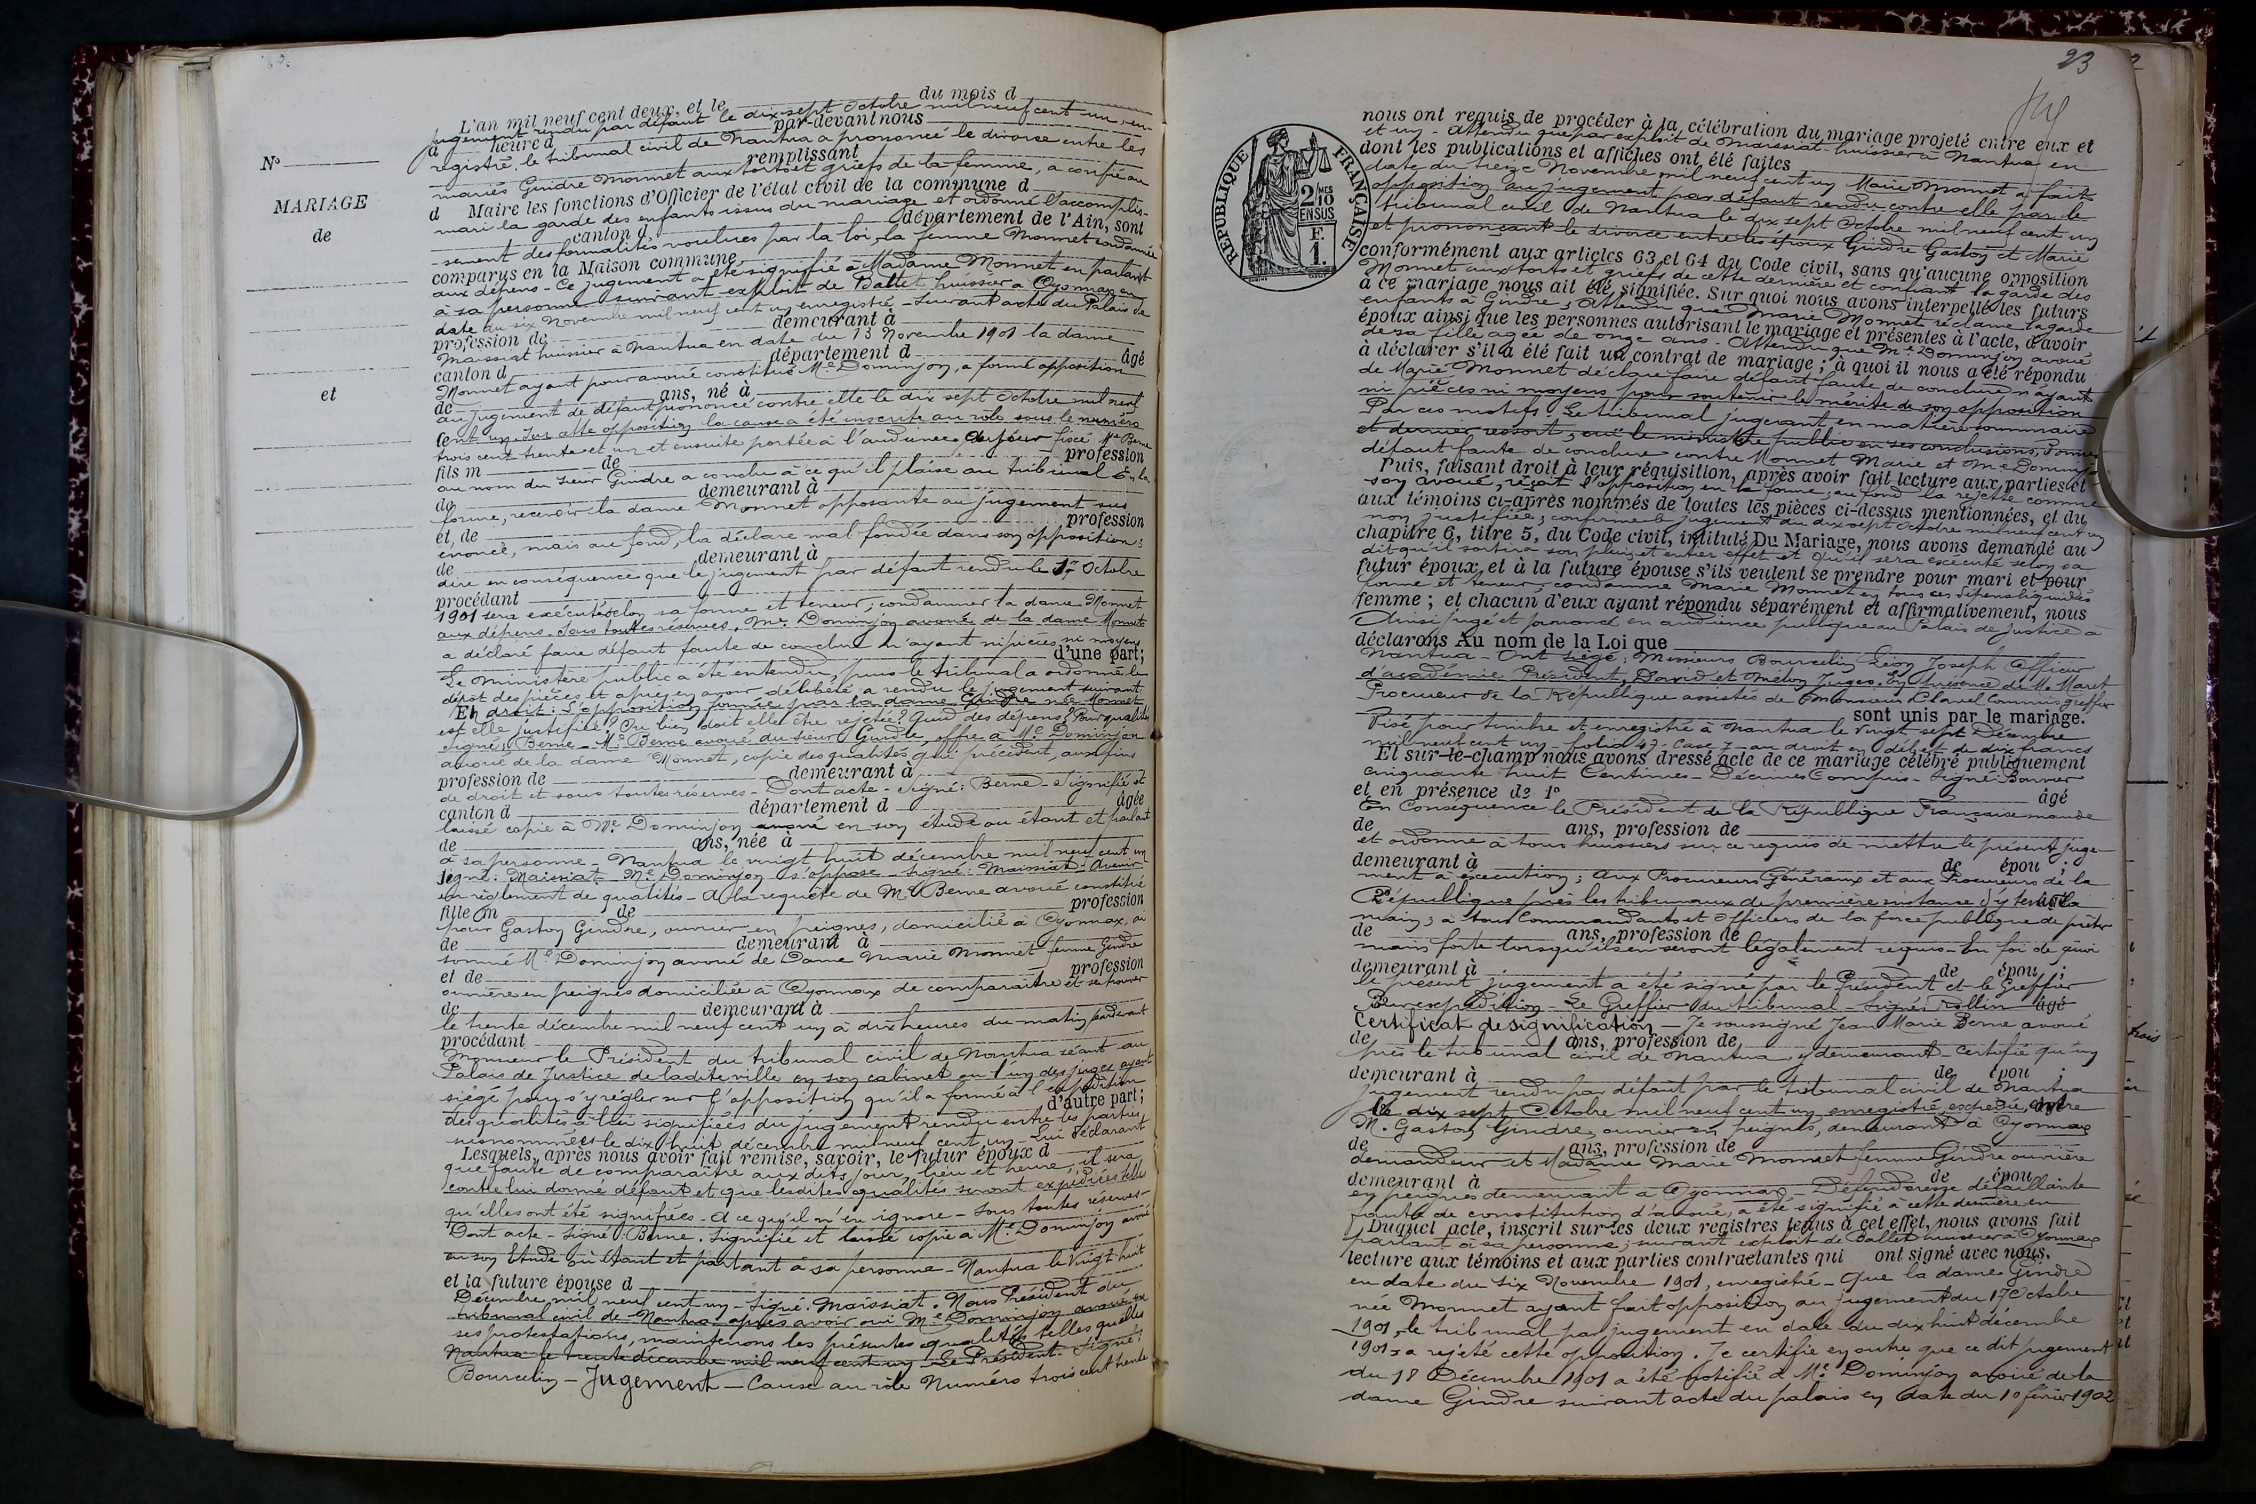 du mois d
L'an mil neuf cent deux, et le
jugement rendu par défaut le dix-sept Octobre mil neuf cent un, en-
à heure d par-devant nous
registré. le tribunal civil de Nantua a prononcé le divorce entre les
N° remplissant
mariés Gindre Monnet aux torts et griefs de la femme, a confié au
MARIAGE
d Maire les fonctions d'Officier de l'état civil de la commune d
mari la garde des enfants issus du mariage et ordonné l'accomplis-
de
canton d département de l'Ain, sont
-sement des formalités voulues par la loi, la femme Monnet condamnée
comparus en la Maison commune
aux dépens - Ce jugement a été signifié à Madame Monnet en parlant
à sa personne suivant exploit de Ballet huissier à Oyonnax en
date du six Novembre mil neuf cent un enregistré - Suivant acte du Palais de
profession de demeurant à
Maissiat huissier à Nantua en date du 13 Novembre 1901 la dame
canton d département d âgé
Monnet ayant pour avoué constitué Me Dominjon, a formé opposition
et
de ans, né à
au jugement de défaut prononcé contre elle le dix sept Octobre mil neuf
cent un. Sur cette opposition la cause a été inscrite au rôle sous le numéro
trois cent trente et un et ensuite portée à l'audience Au jour fixé Me Berne
fils m de profession
au nom du sieur Gindre a conclu à ce qu'il plaise au tribunal En la
de demeurant à
forme, recevoir la dame Monnet opposante au jugement sus
et de profession
énoncé, mais au fond, la déclare mal fondée dans son opposition;
de demeurant à
dire en conséquence que le jugement par défaut rendu le 17 Octobre
procédant
1901 sera exécuté selon sa forme et teneur, condamner la dame Monnet
aux dépens. Sous toutes réserves. Me Dominjon avoué de la dame Monnet
a déclaré faire défaut faute de conclure n'ayant ni pièces ni moyens
d'une part;
Le Ministère public a été entendu, puis le tribunal a ordonné le
dépôt des pièces et après en avoir délibéré, a rendu le jugement suivant
En droit: L'opposition formée par la dame Gindre née Monnet
est elle justifiée? Ou bien doit elle être rejetée? Quid des dépens? Pour qualités
signé: Berne - Me Berne avoué du sieur Gindre, offre à Me Dominjon
avoué de la dame Monnet, copie des qualités qui précèdent, aux fins
profession de demeurant à
de droit et sous toutes réserves - Dont acte - signé: Berne - Signifié et
canton d département d âgée
laissé copie à Me Dominjon avoué en son étude où étant et parlant
de ans, née à
à sa personne - Nantua le vingt huit décembre mil neuf cent un
signé: Maissiat - Me Dominjon s'oppose - signé: Maissiat - Avenir
en règlement de qualités - A la requête de Me Berne avoué constitué
fille m de profession
pour Gaston Gindre, ouvrier en peignes, domicilié à Oyonnax, ai
de demeurant à
sommé Me Dominjon avoué de Dame Marie Monnet femme Gindre
et de profession
ouvrière en peignes domiciliée à Oyonnax de comparaître et se trouver
de demeurant à
le trente décembre mil neuf cent un à dix heures du matin pardevant
procédant
Monsieur le Président du tribunal civil de Nantua séant au
Palais de Justice de ladite ville en son cabinet ou l'un des juges ayant
siégé pour s'y régler sur l'opposition qu'il a formé à l'expédition
d'autre part;
des qualités à lui signifiées du jugement rendu entre les parties
susnommées le dix huit décembre mil neuf cent un - Lui déclarant
Lesquels, après nous avoir fait remise, savoir, le futur époux d
que faute de comparaître aux dits jour, lieu et heure, il sera
contre lui donné défaut et que lesdites qualités seront expédiées telles
qu'elles ont été signifiées - A ce qu'il n'en ignore - Sous toutes réserves -
Dont acte - Signé: Berne. Signifié et laissé copie à Me Dominjon avoué
en son Etude où étant et parlant à sa personne - Nantua le Vingt huit
et la future épouse d
Décembre mil neuf cent un - Signé: Maissiat. Nous Président du
tribunal civil de Nantua après avoir oui Me Dominjon avoué en
ses protestations, maintenons les présentes qualités telles quelles
Nantua le trente décembre mil neuf cent un Le Président Signé:
Bourcelin - Jugement - Cause au rôle Numéro trois cent trente
23
nous ont requis de procéder à la célébration du mariage projeté entre eux et
et un - Attendu que par exploit de Maissiat huissier à Nantua en
dont les publications et affiches ont été faites
date du treize Novembre mil neuf cent un Marie Monnet a fait
opposition au jugement par défaut rendu contre elle par le
tribunal civil de Nantua le dix sept Octobre mil neuf cent un
et prononçant le divorce entre les époux Gindre Gaston et Marie
RÉPUBLIQUE FRANÇAISE
2/10 MES EN SUS
F. 1.
conformément aux articles 63 et 64 du Code civil, sans qu'aucune opposition
Monnet aux torts et griefs de cette dernière et confiant la garde des
à ce mariage nous ait été signifiée. Sur quoi nous avons interpellé les futurs
enfants à Gindre; Attendu que Marie Monnet réclame la garde
époux ainsi que les personnes autorisant le mariage et présentes à l'acte, d'avoir
de sa fille agée de onze ans. Attendu que Me Dominjon avoué
à déclarer s'il a été fait un contrat de mariage; à quoi il nous a été répondu
de Marie Monnet déclare faire défaut faute de conclure n'ayant
ni pièces ni moyens pour soutenir le mérite de son opposition
Par ces motifs Le tribunal jugeant en matière sommaire
et dernier ressort, ouï le ministère public en ses conclusions, Donne
défaut faute de conclure contre Monnet Marie et Me Domin-
Puis, faisant droit à leur réquisition, après avoir fait lecture aux parties et
jon avoué, reçoit l'opposition en la forme, au fond la rejette comme
aux témoins ci-après nommés de toutes les pièces ci-dessus mentionnées, et du
non justifiée; confirme le jugement du dix sept Octobre mil neuf cent un
chapitre 6, titre 5, du Code civil, intitulé Du Mariage, nous avons demandé au
dit qu'il sortira son plein et entier effet et qu'il sera exécuté selon sa
futur époux, et à la future épouse s'ils veulent se prendre pour mari et pour
forme et teneur, condamne Marie Monnet en tous les dépens liquidés
femme; et chacun d'eux ayant répondu séparément et affirmativement, nous
Ainsi jugé et prononcé en audience publique au Palais de Justice à
déclarons Au nom de la Loi que
Nantua - Ont siégé: Messieurs Bourcelin Léon Joseph Officier
d'académie Président, David et Mélon Juges, En présence de M. Maret
Procureur de la République assistés de Monsieur Clavel Commis greffier
sont unis par le mariage.
Visé pour timbre et enregistré à Nantua le Vingt sept Décembre
mil neuf cent un - folio 49 - Case 7 - au droit en débet de dix francs
Et sur-le-champ nous avons dressé acte de ce mariage célébré publiquement
cinquante huit Centimes - Décimes Compris - Signé: Bonner
et en présence de 1° âgé
En Conséquence le Président de la République Française mande
de ans, profession de
et ordonne à tous huissiers sur ce requis de mettre le présent juge-
demeurant à de épou ;
ment à exécution; Aux Procureurs Généraux et aux Procureurs de la
République près les tribunaux de première instance d'y tenir la
main; à tous Commandants et Officiers de la force publique de prêter
de ans, profession de
main forte lorsqu'ils en seront légalement requis. En foi de quoi
demeurant à de épou ;
le présent jugement a été signé par le Président et le Greffier
Pour expédition - Le Greffier du tribunal - Signé: Rollin âgé
Certificat de signification - Je soussigné Jean Marie Berne avoué
de ans, profession de
près le tribunal civil de Nantua, y demeurant certifie qu'un
demeurant à de épou ;
jugement rendu par défaut par le tribunal civil de Nantua
le dix sept Octobre mil neuf cent un enregistré, expédié, entre
M. Gaston Gindre, ouvrier en peignes, demeurant à Oyonnax
de ans, profession de
demandeur et Madame Marie Monnet femme Gindre ouvrière
demeurant à de épou
en peignes demeurant à Oyonnax Défenderesse défaillante
faute de constitution d'avoué, a été signifié à cette dernière en
Duquel acte, inscrit sur les deux registres tenus à cet effet, nous avons fait
parlant à sa personne; suivant exploit de Ballet huissier à Oyonnax
lecture aux témoins et aux parties contractantes qui ont signé avec nous.
en date du six Novembre 1901, enregistré - Que la dame Gindre
née Monnet ayant fait opposition au jugement du 17 Octobre
1901, le tribunal par jugement en date du dix huit décembre
1901 a rejeté cette opposition. Je certifie en outre que ce dit jugement
du 18 Décembre 1901 a été notifié à Me Dominjon avoué de la
dame Gindre suivant acte du palais en date du 10 février 1902